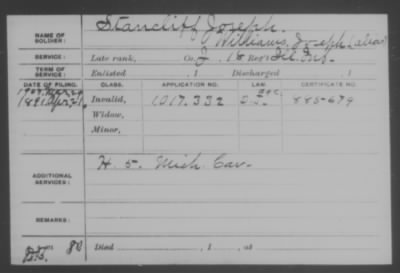 NAME OF SOLDIER: Stancliff, Joseph.
Williams, Joseph (alias)
SERVICE: Late rank, Co. J, 18 Reg't Ill. Inf.
TERM OF SERVICE: Enlisted , 1 Discharged , 1
DATE OF FILING. CLASS. APPLICATION NO. LAW. CERTIFICATE NO.
1891 Apr 21, Invalid, 1.017.332 885-679
Widow,
Minor,
ADDITIONAL SERVICES: H. 5. Mich Cav.
REMARKS:
Died , 1 , at